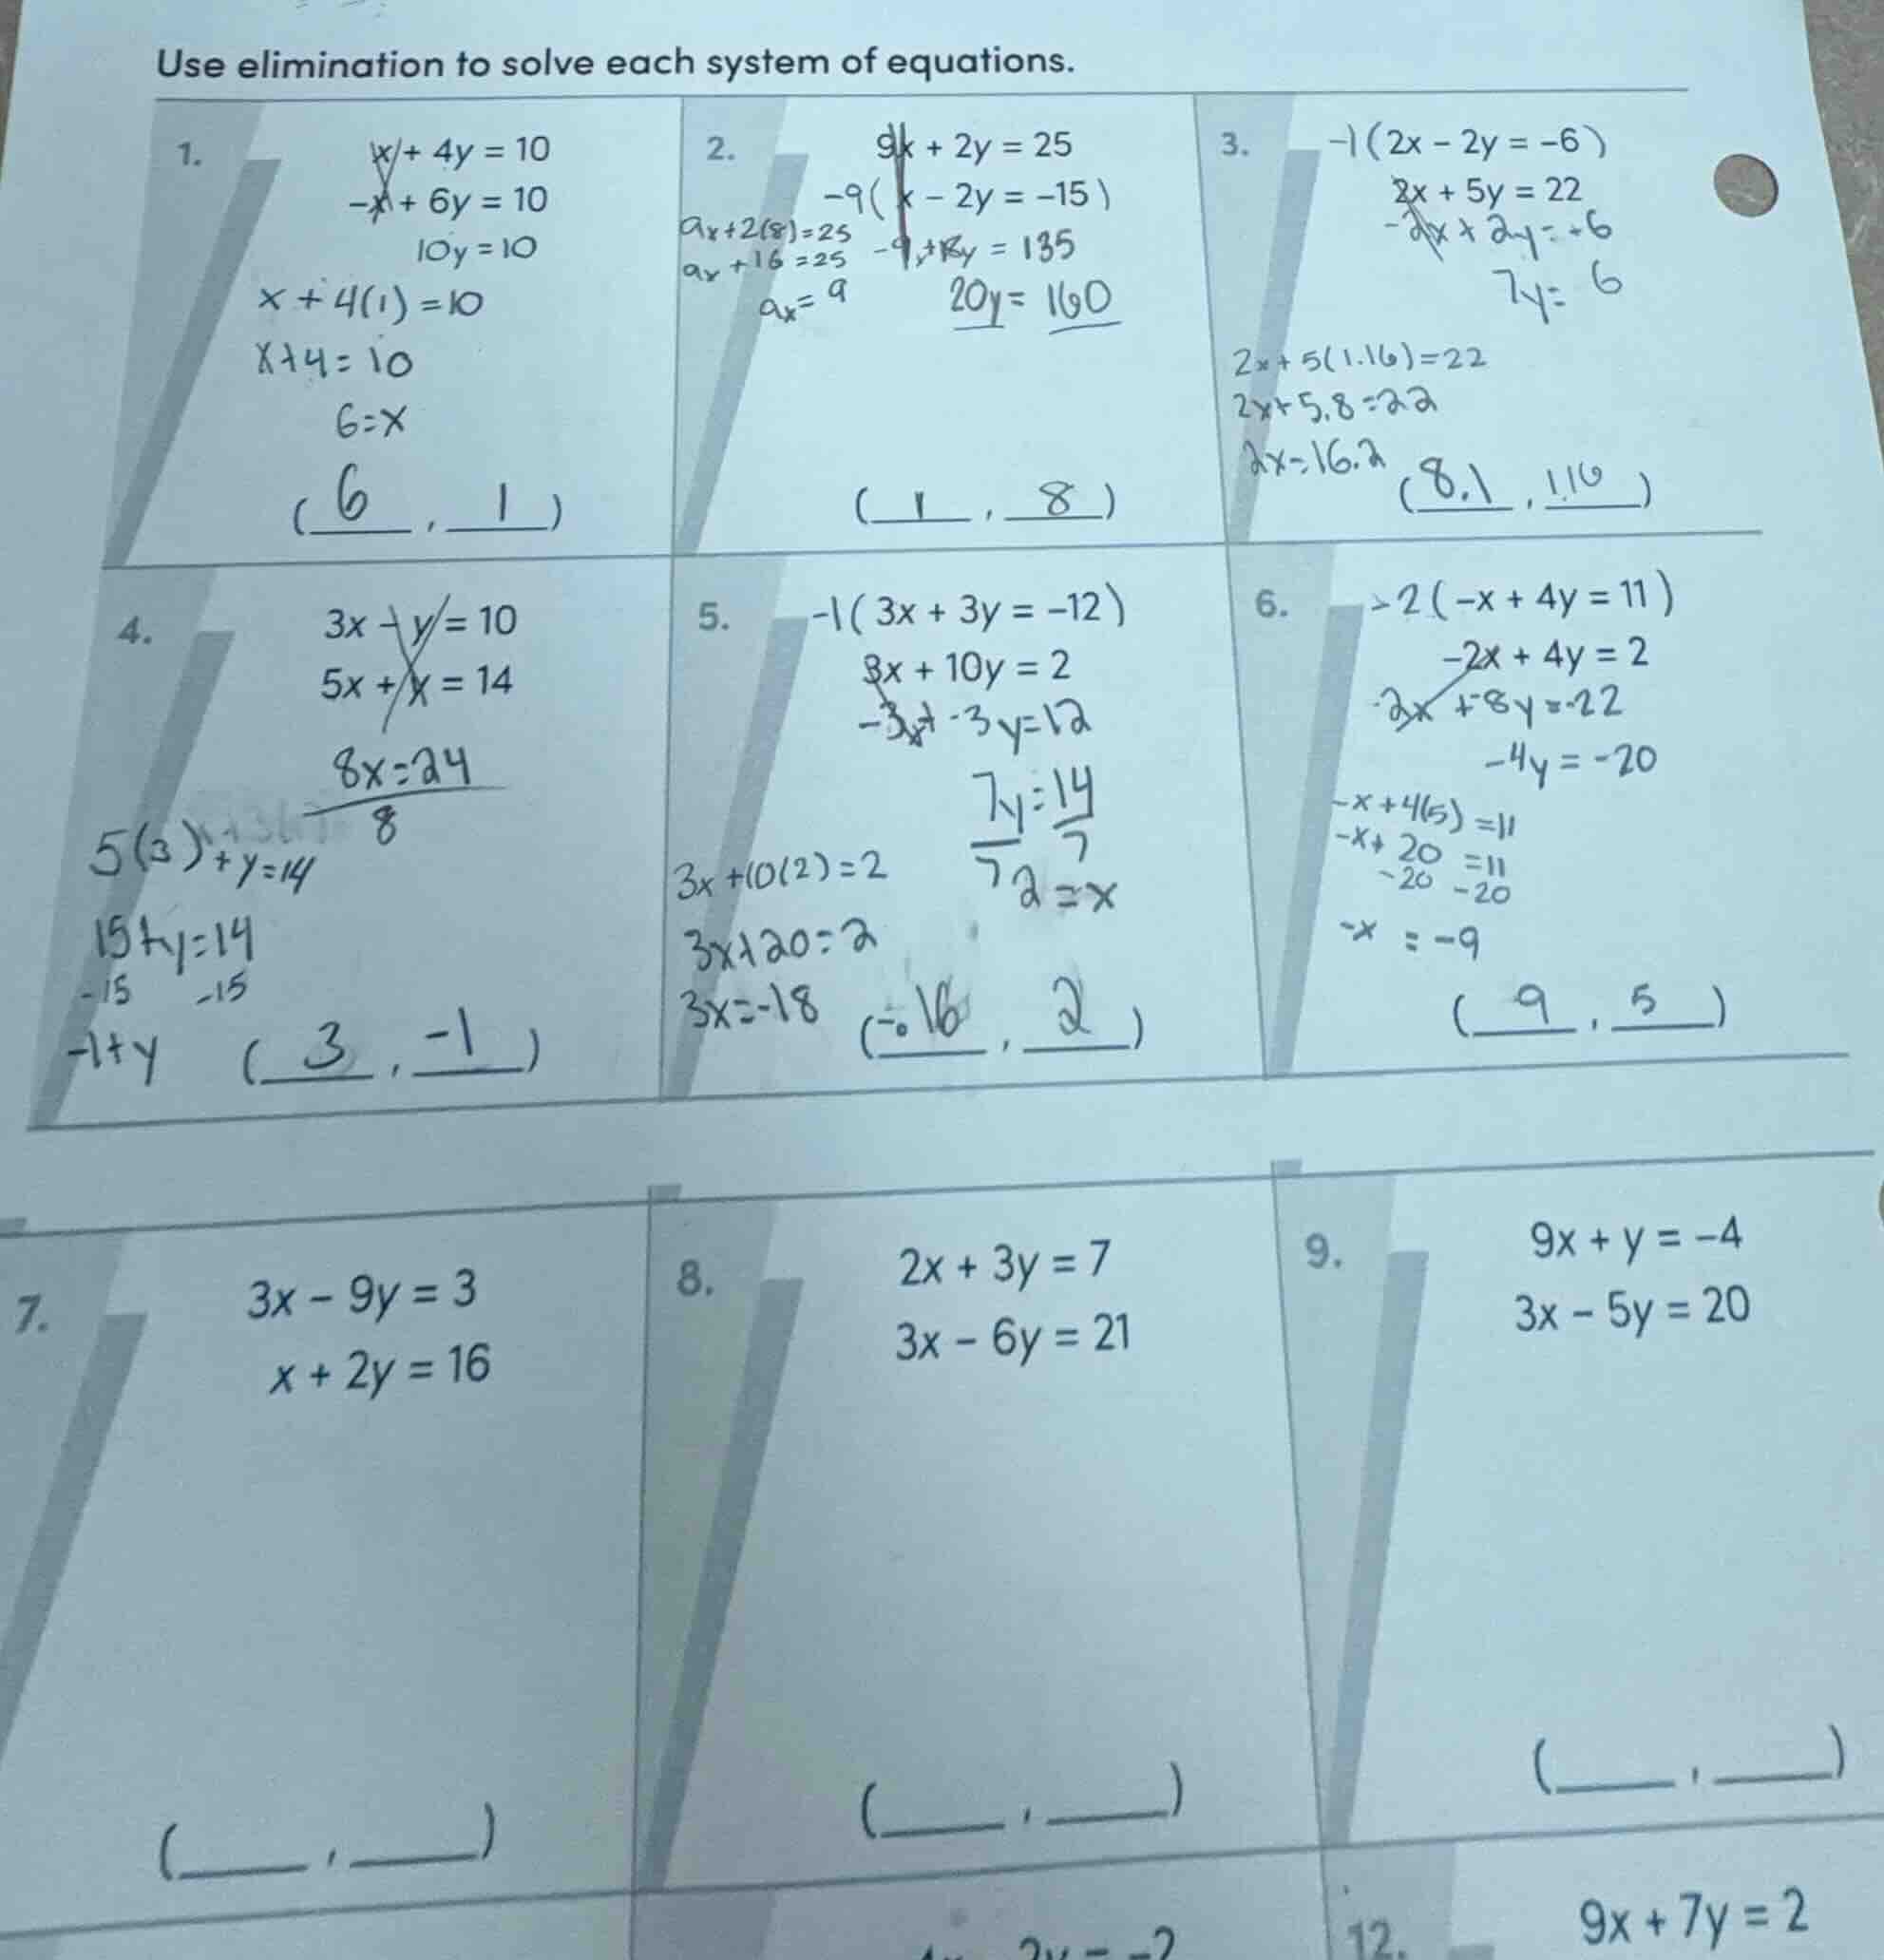 Use elimination to solve each system of equations.
1.
x + 4y = 10
-x + 6y = 10
10y = 10
x + 4(1) = 10
x + 4 = 10
6 = x
( 6 , 1 )
2.
9x + 2y = 25
-9( x - 2y = -15 )
9x + 2(8) = 25
-9x + 18y = 135
9x + 16 = 25
9x = 9
20y = 160
( 1 , 8 )
3.
-1( 2x - 2y = -6 )
2x + 5y = 22
-2x + 2y = +6
7y = 6
2x + 5(1.16) = 22
2x + 5.8 = 22
2x = 16.2
( 8.1 , 1.16 )
4.
3x - y = 10
5x + y = 14
8x = 24
8
5(3) + y = 14
15 + y = 14
-15 -15
-1 + y
( 3 , -1 )
5.
-1( 3x + 3y = -12 )
3x + 10y = 2
-3x + -3y = 12
7y = 14
7 7
2 = x
3x + 10(2) = 2
3x + 20 = 2
3x = -18
( -.16 , 2 )
6.
-2( -x + 4y = 11 )
-2x + 4y = 2
-2x + -8y = -22
-4y = -20
-x + 4(5) = 11
-x + 20 = 11
-20 -20
-x = -9
( 9 , 5 )
7.
3x - 9y = 3
x + 2y = 16
( , )
8.
2x + 3y = 7
3x - 6y = 21
( , )
9.
9x + y = -4
3x - 5y = 20
( , )
2y = -2
12.
9x + 7y = 2